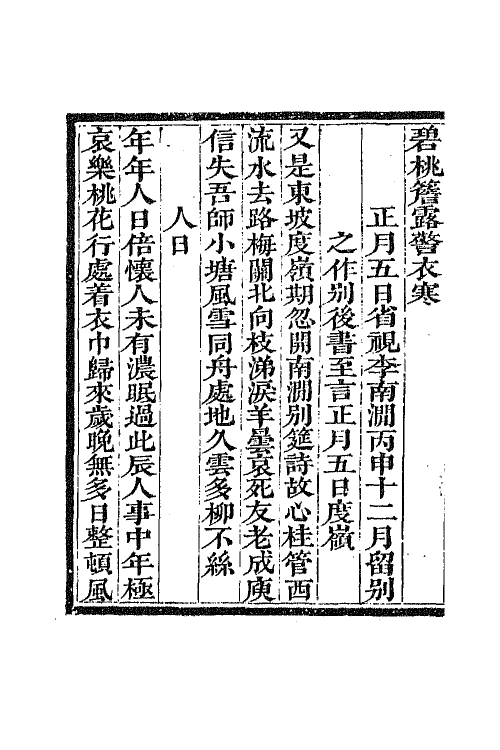 碧桃簷露警衣寒
正月五日省視李南澗丙申十二月留别
之作别後書至言正月五日度嶺
又是東坡度嶺期忽開南澗别筵詩故心桂管西
流水去路梅關北向枝涕淚羊曇哀死友老成庾
信失吾師小塘風雪同舟處地久雲多柳不絲
人日
年年人日倍懷人未有濃眠過此辰人事中年極
哀樂桃花行處着衣巾歸來歲晚無多日整頓風